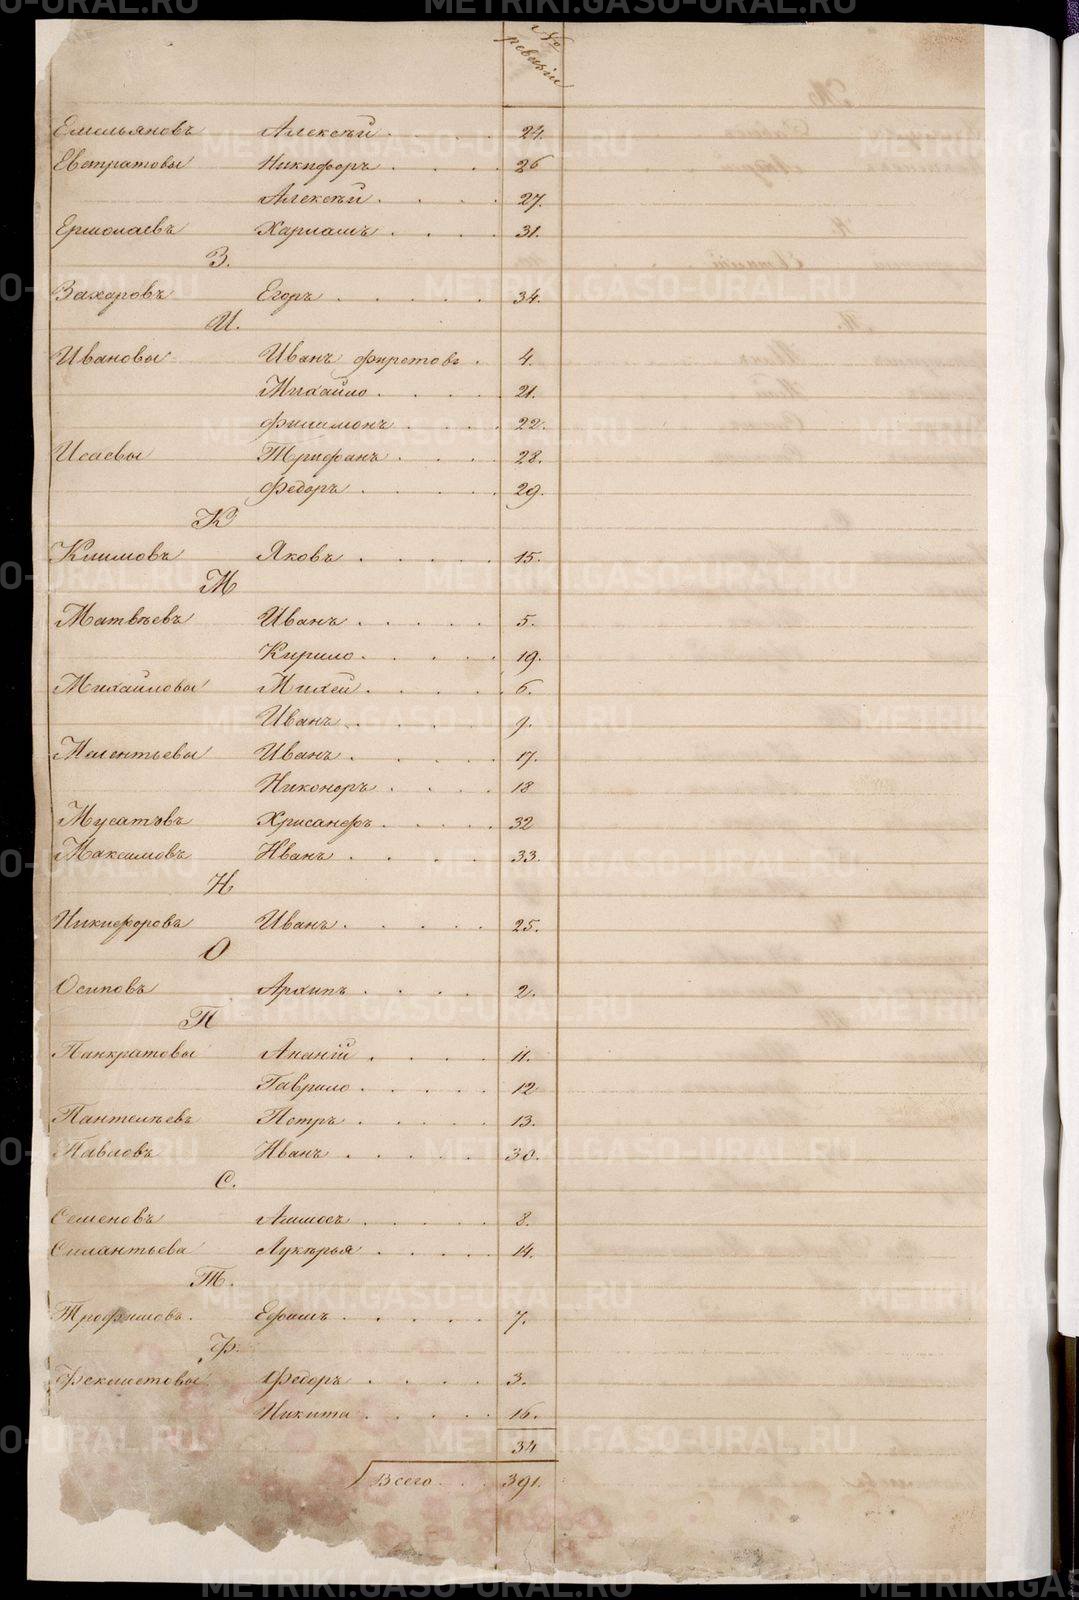 №
ревизіи
Емельяновъ Алексѣй . . . . 24.
Евстратовы Никифоръ . . . . 26
Алексѣй . . . . 27.
Ермолаевъ Харламъ . . . . 31.
З.
Захаровъ Егоръ . . . . . 34.
И.
Ивановы Иванъ Фирсовъ . 4.
Михайло . . . . . 21.
Филимонъ . . . . 22.
Исаевы Трифанъ . . . . 28.
Федоръ . . . . . 29.
К
Климовъ Яковъ . . . . . 15.
М
Матвѣевъ Иванъ . . . . . 5.
Кирило . . . . . 19.
Михайловы Михей . . . . . 6.
Иванъ . . . . . 9.
Иванъ . . . . . 17.
Никоноръ . . . . 18
Мусатовъ Хрисанфъ . . . . 32
Максимовъ Иванъ . . . . . 33.
Н
Никифоровъ Иванъ . . . . . 25.
О
Осиповъ Архипъ . . . . 2.
П
Панкратовы Ананій . . . . 11.
Гаврило . . . . . 12
Пантелѣевъ Петръ . . . . . 13.
Павловъ Иванъ . . . . . 30.
С.
Семеновъ Аммосъ . . . . 8.
Силантьева Лукѣрья . . . . 14.
Т.
Трофимовъ. Ефимъ . . . . . 7.
Ф.
Феклистовы Федоръ . . . . 3.
Никита . . . . . 16.
34
Всего . . . 391.
METRIKI.GASO-URAL.RU